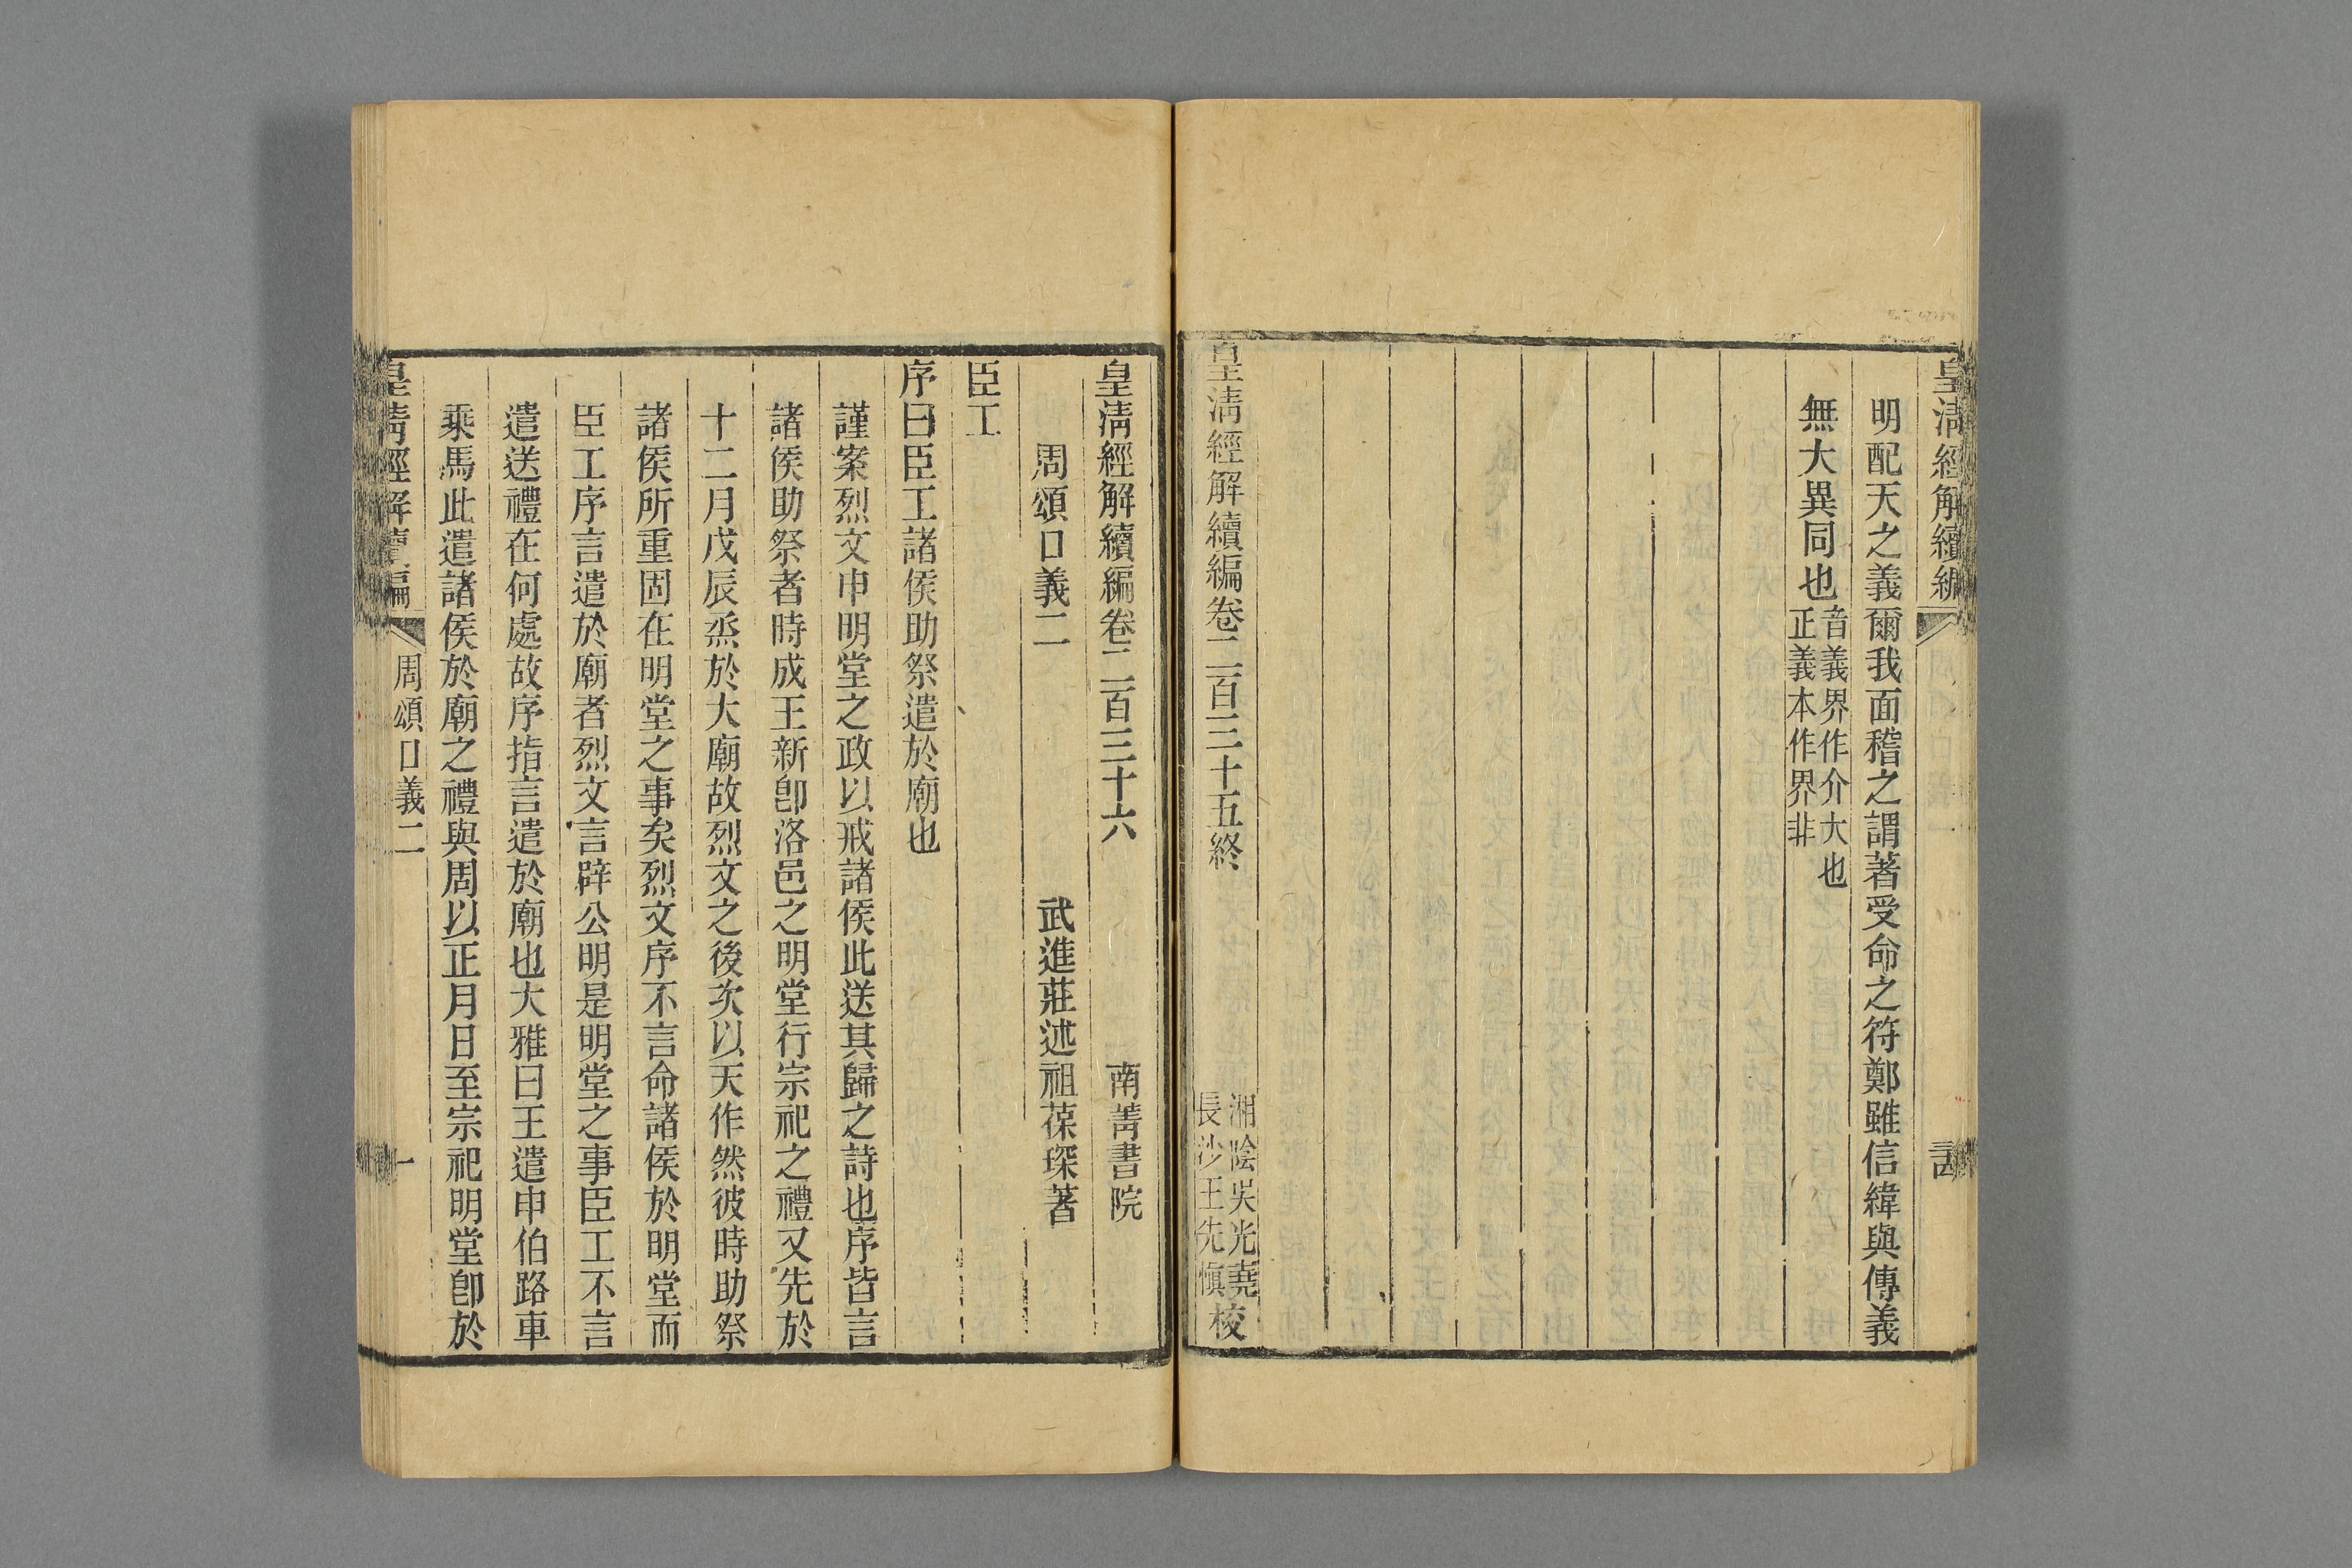 皇淸經解續編
明配天之義爾我面稽之謂著受命之符鄭雖信緯與傳義
無大異同也音義界作介大也正義本作界非
皇淸經解續編卷二百三十五終
湘陰吳光堯
長沙王先愼校
皇淸經解續編卷二百三十六
南菁書院
周頌口義二
武進莊述祖葆琛著
臣工
序曰臣工諸侯助祭遣於廟也
謹案烈文申明堂之政以戒諸侯此送其歸之詩也序皆言
諸侯助祭者時成王新卽洛邑之明堂行宗祀之禮又先於
十二月戊辰烝於大廟故烈文之後次以天作然彼時助祭
諸侯所重固在明堂之事矣烈文序不言命諸侯於明堂而
臣工序言遣於廟者烈文言辟公明是明堂之事臣工不言
遣送禮在何處故序指言遣於廟也大雅曰王遣申伯路車
乘馬此遣諸侯於廟之禮與周以正月日至宗祀明堂卽於
皇淸經解續編
周頌口義二
一